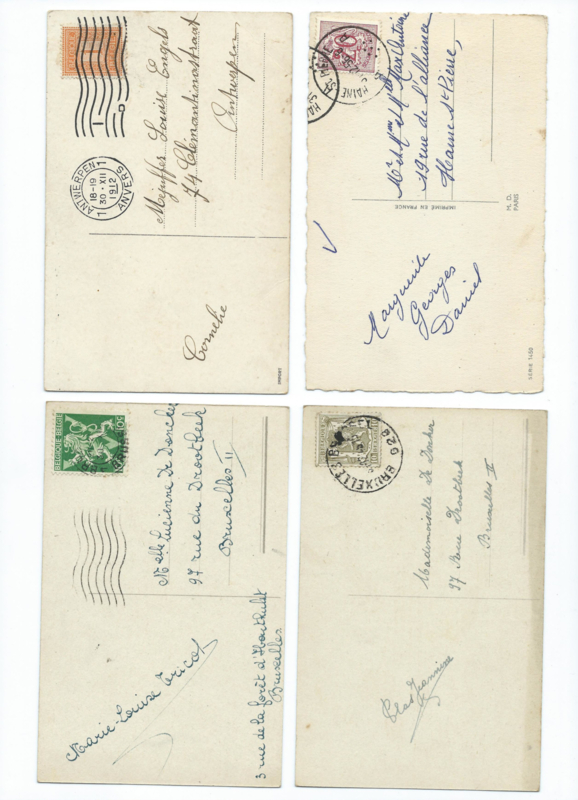 ANTWERPEN
18-19
30·XII
1912
ANVERS
Mejuffer Louise Engels
74 Clémentinastraat
Antwerpen
Cornelie
20
HAINE
Mr et Mme
19 rue de l'alliance
Haine St Pierre,
IMPRIMÉ EN FRANCE
M. D.
PARIS
Marguerite
Georges
Daniel
SERIE 1452
BELGIQUE BELGIE
10c
Melle Lucienne De
97 rue du Drootbeek
Bruxelles II
Marie-Louise Tricot
3 rue de la forêt d'Houthulst
Bruxelles
BRUXELLES
BRUSSEL
Mademoiselle De
97 Rue Drootbeek
Bruxelles II
Jeannine